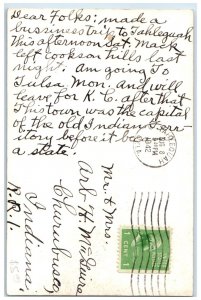 Dear Folks; made a
bussiness trip to Tahlequah
this afternoon Sat. Mack
left Cookson hills last
night. Am going to
Tulsa Mon. and will
leave for K.C. after that
This town was the capital
of the old Indian Terr-
itory before it became
a state.
Mr. + Mrs.
Arb H. McGuire
Churubusco
Indiana.
R.R.1.
1 CENT 1